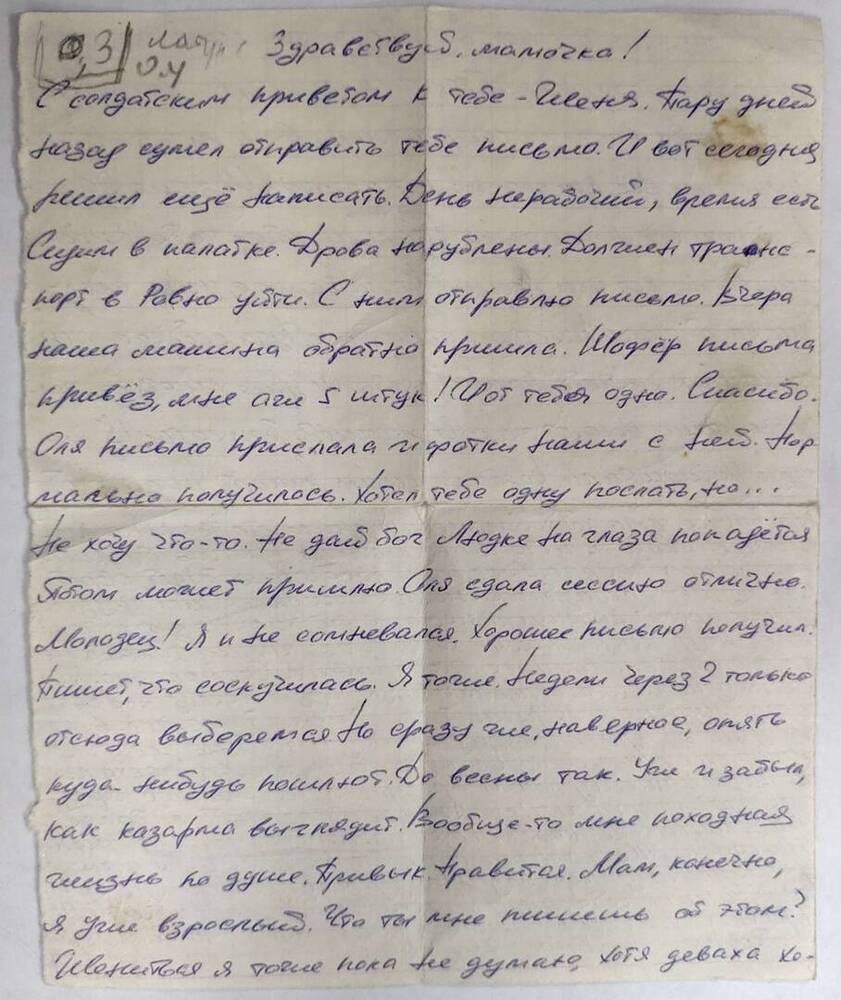 Здравствуй, мамочка!
С солдатским приветом к тебе - Женя. Пару дней
назад сумел отправить тебе письмо. И вот сегодня
решил ещё написать. День нерабочий, время есть
Сидим в палатке. Дрова нарублены. Должен транс-
порт в Ровно уйти. С ним отправлю письмо. Вчера
наша машина обратно пришла. Шофёр письма
привёз, мне аж 5 штук! И от тебя одно. Спасибо.
Оля письмо прислала и фотки наши с ней. Нор
мально получилось. Хотел тебе одну послать, но...
Не хочу что-то. Не дай бог Людке на глаза попадётся
Потом может пришлю. Оля сдала сессию отлично.
Молодец! Я и не сомневался. Хорошее письмо получил.
Пишет, что соскучилась. Я тоже. Недели через 2 только
отсюда выберемся. Но сразу же, наверное, опять
куда-нибудь пошлют. До весны так. Уже и забыл,
как казарма выглядит. Вообще-то мне походная
жизнь по душе. Привык. Нравится. Мам, конечно,
я уже взрослый. Что ты мне пишешь об этом?
Жениться я тоже пока не думаю, хотя деваха хо-